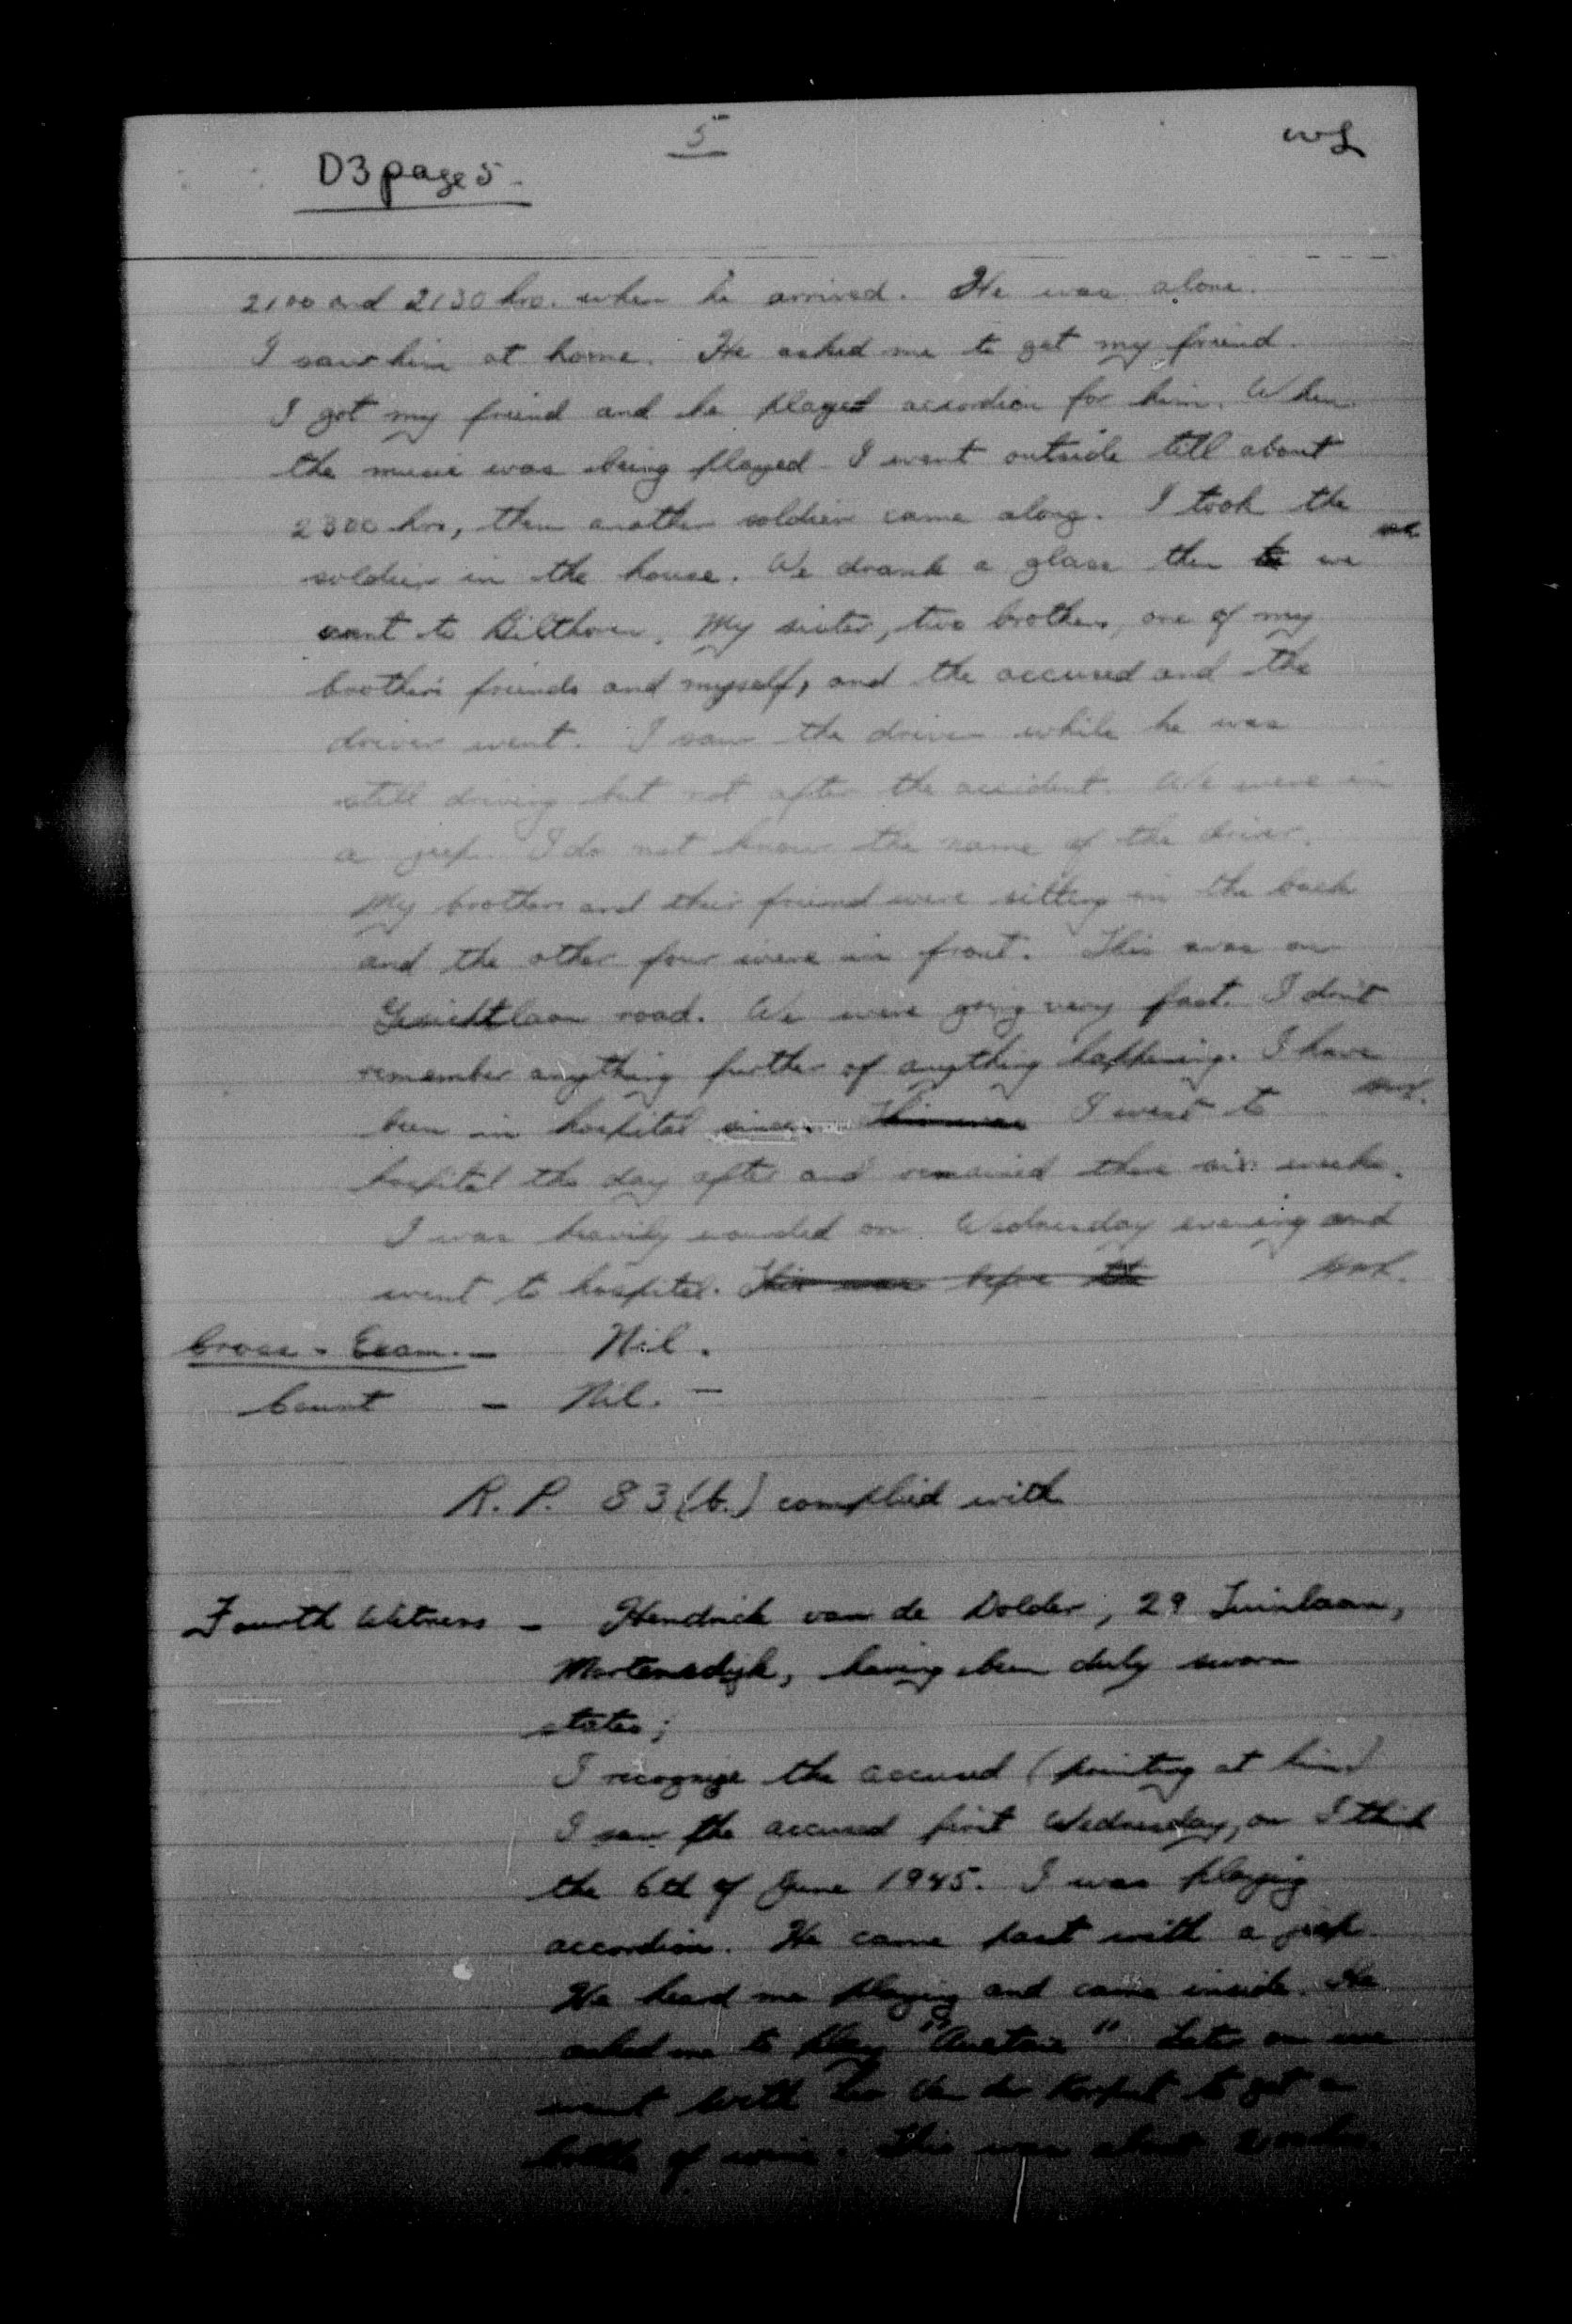 5
D3 page 5.
2100 and 2130 hrs. when he arrived. He was alone.
I saw him at home. He asked me to get my friend.
I got my friend and he played accordion for him. When
the music was being played I went outside till about
2300 hrs, then another soldier came along. I took the
soldier in the house. We drank a glass then we
went to Bilthoven. My sister, two brothers, one of my
brothers friends and myself, and the accused and the
driver went. I saw the driver while he was
still driving but not after the accident. We were in
a jeep. I do not know the name of the driver.
My brothers and their friend were sitting in the back
and the other four were in front. This was on
Gesichtlaan road. We were going very fast. I don't
remember anything further of anything happening. I have
been in hospital since. This was I went to
hospital the day after and remained there six weeks.
I was heavily wounded on Wednesday evening and
went to hospital. This was before the
Cross-Exam. - Nil.
Court - Nil. -
R.P. 83(b.) complied with
Fourth Witness - Hendrick van de Dolder, 29
Martensdijk, having been duly sworn
states;
I recognize the accused (pointing at him)
I saw the accused first Wednesday, on I think
the 6th of June 1945. I was playing
accordion. He came past with a jeep.
He heard me playing and came inside. He
asked me to play " " Later on we
went with to get a
bottle of wine. This was about